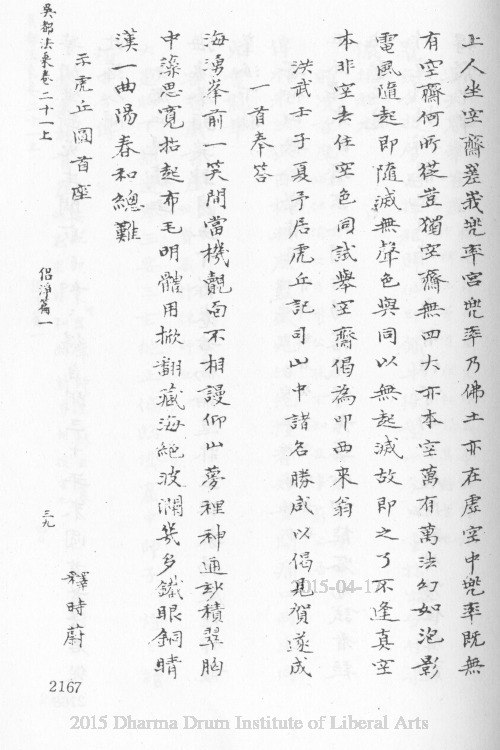 上人坐空齋蓋哉兜率宮兜率乃佛土亦在虛空中兜率既無
有空齋何所從豈獨空齋無四大亦本空萬有萬法幻如泡影
電風隨起即隨滅無聲色與同以無起滅故即之了不逢真空
本非空去住空色同試舉空齋偈為叩西來翁
洪武壬子夏予居虎丘記司山中諸名勝咸以偈見賀遂成
一首奉答
海湧峯前一笑間當機覿面不相謾仰山夢裡神通玅積翠胸
中藻思寬拈起布毛明體用掀翻藏海絕波瀾幾多鐵眼銅睛
漢一曲陽春和總難
示虎丘圓首座
釋時蔚
吳都法乘卷二十一上
倡淨篇一
三九
2167
2015-04-17
2015 Dharma Drum Institute of Liberal Arts